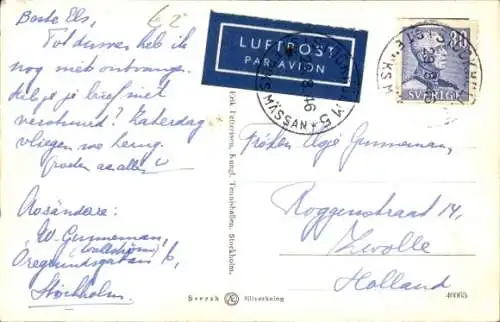 Beste Els,
Tot dusver heb ik
nog niet ontvangen.
Heb je je brief niet
verstuurd? Zaterdag
vliegen we terug.
Groeten aan allen
Avsändare:
W. Gunneman,
Öregrundsgatan 6,
Stockholm.
LUFTPOST
PAR AVION
STOCKHOLM 5
MÄSSAN
SVERIGE
Erik Pettersson, Kungl. Tennishallen, Stockholm.
Fröken Gunneman
Roggenstraat 14,
Zwolle
Holland
Svensk Tillverkning
40065